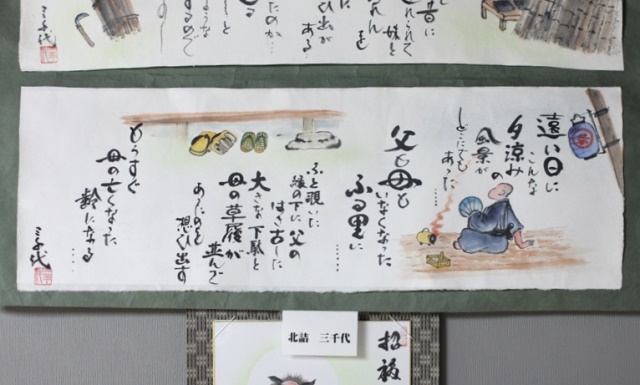 昔に
妹と
ひ出が
ある
たのか…
するので
三千代
遠い日に
こんな
夕涼みの
風景が
どこにでも
あった……
父も母も
いなくなった
ふる里に……
ふと覗いた
縁の下に父の
はき古した
大きな下駄と
母の草履が並んで
想ひ出す
もうすぐ
母の亡くなった
齢になる….
三千代
北詰 三千代
招福